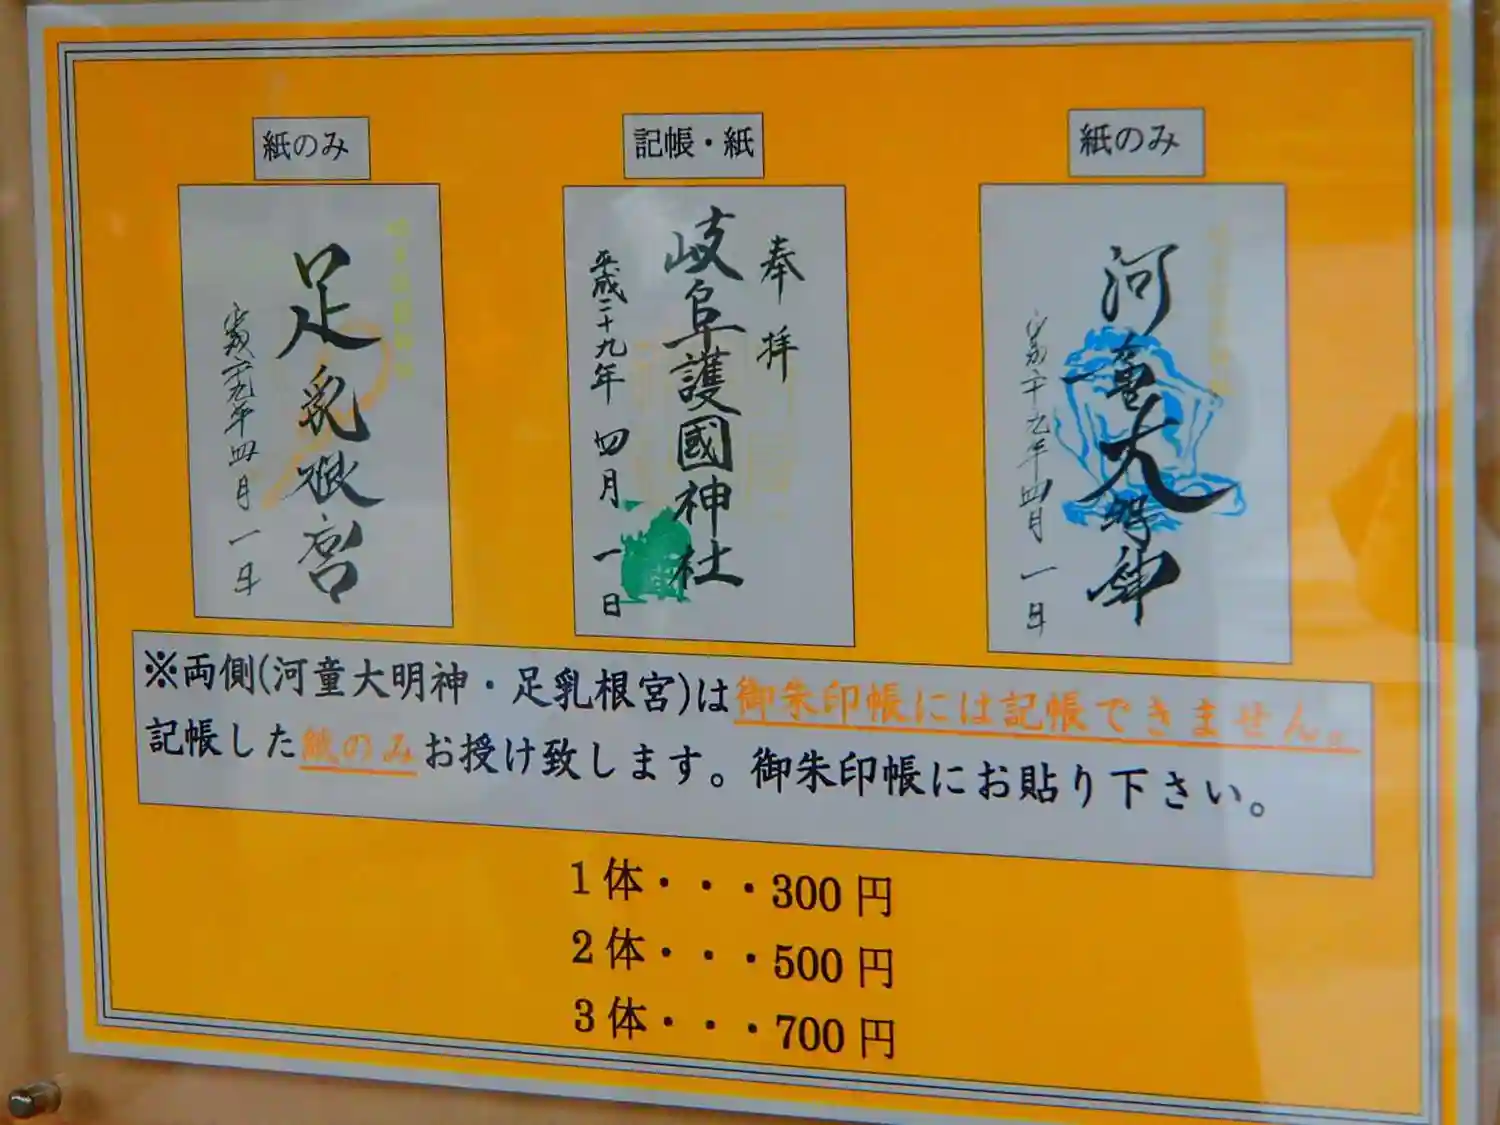 紙のみ
記帳・紙
紙のみ
足乳根宮
平成二十九年四月一日
奉拝
岐阜護國神社
平成二十九年 四月 一日
河童大明神
平成二十九年四月一日
※両側(河童大明神・足乳根宮)は御朱印帳には記帳できません。
記帳した紙のみお授け致します。御朱印帳にお貼り下さい。
1体・・・300円
2体・・・500円
3体・・・700円